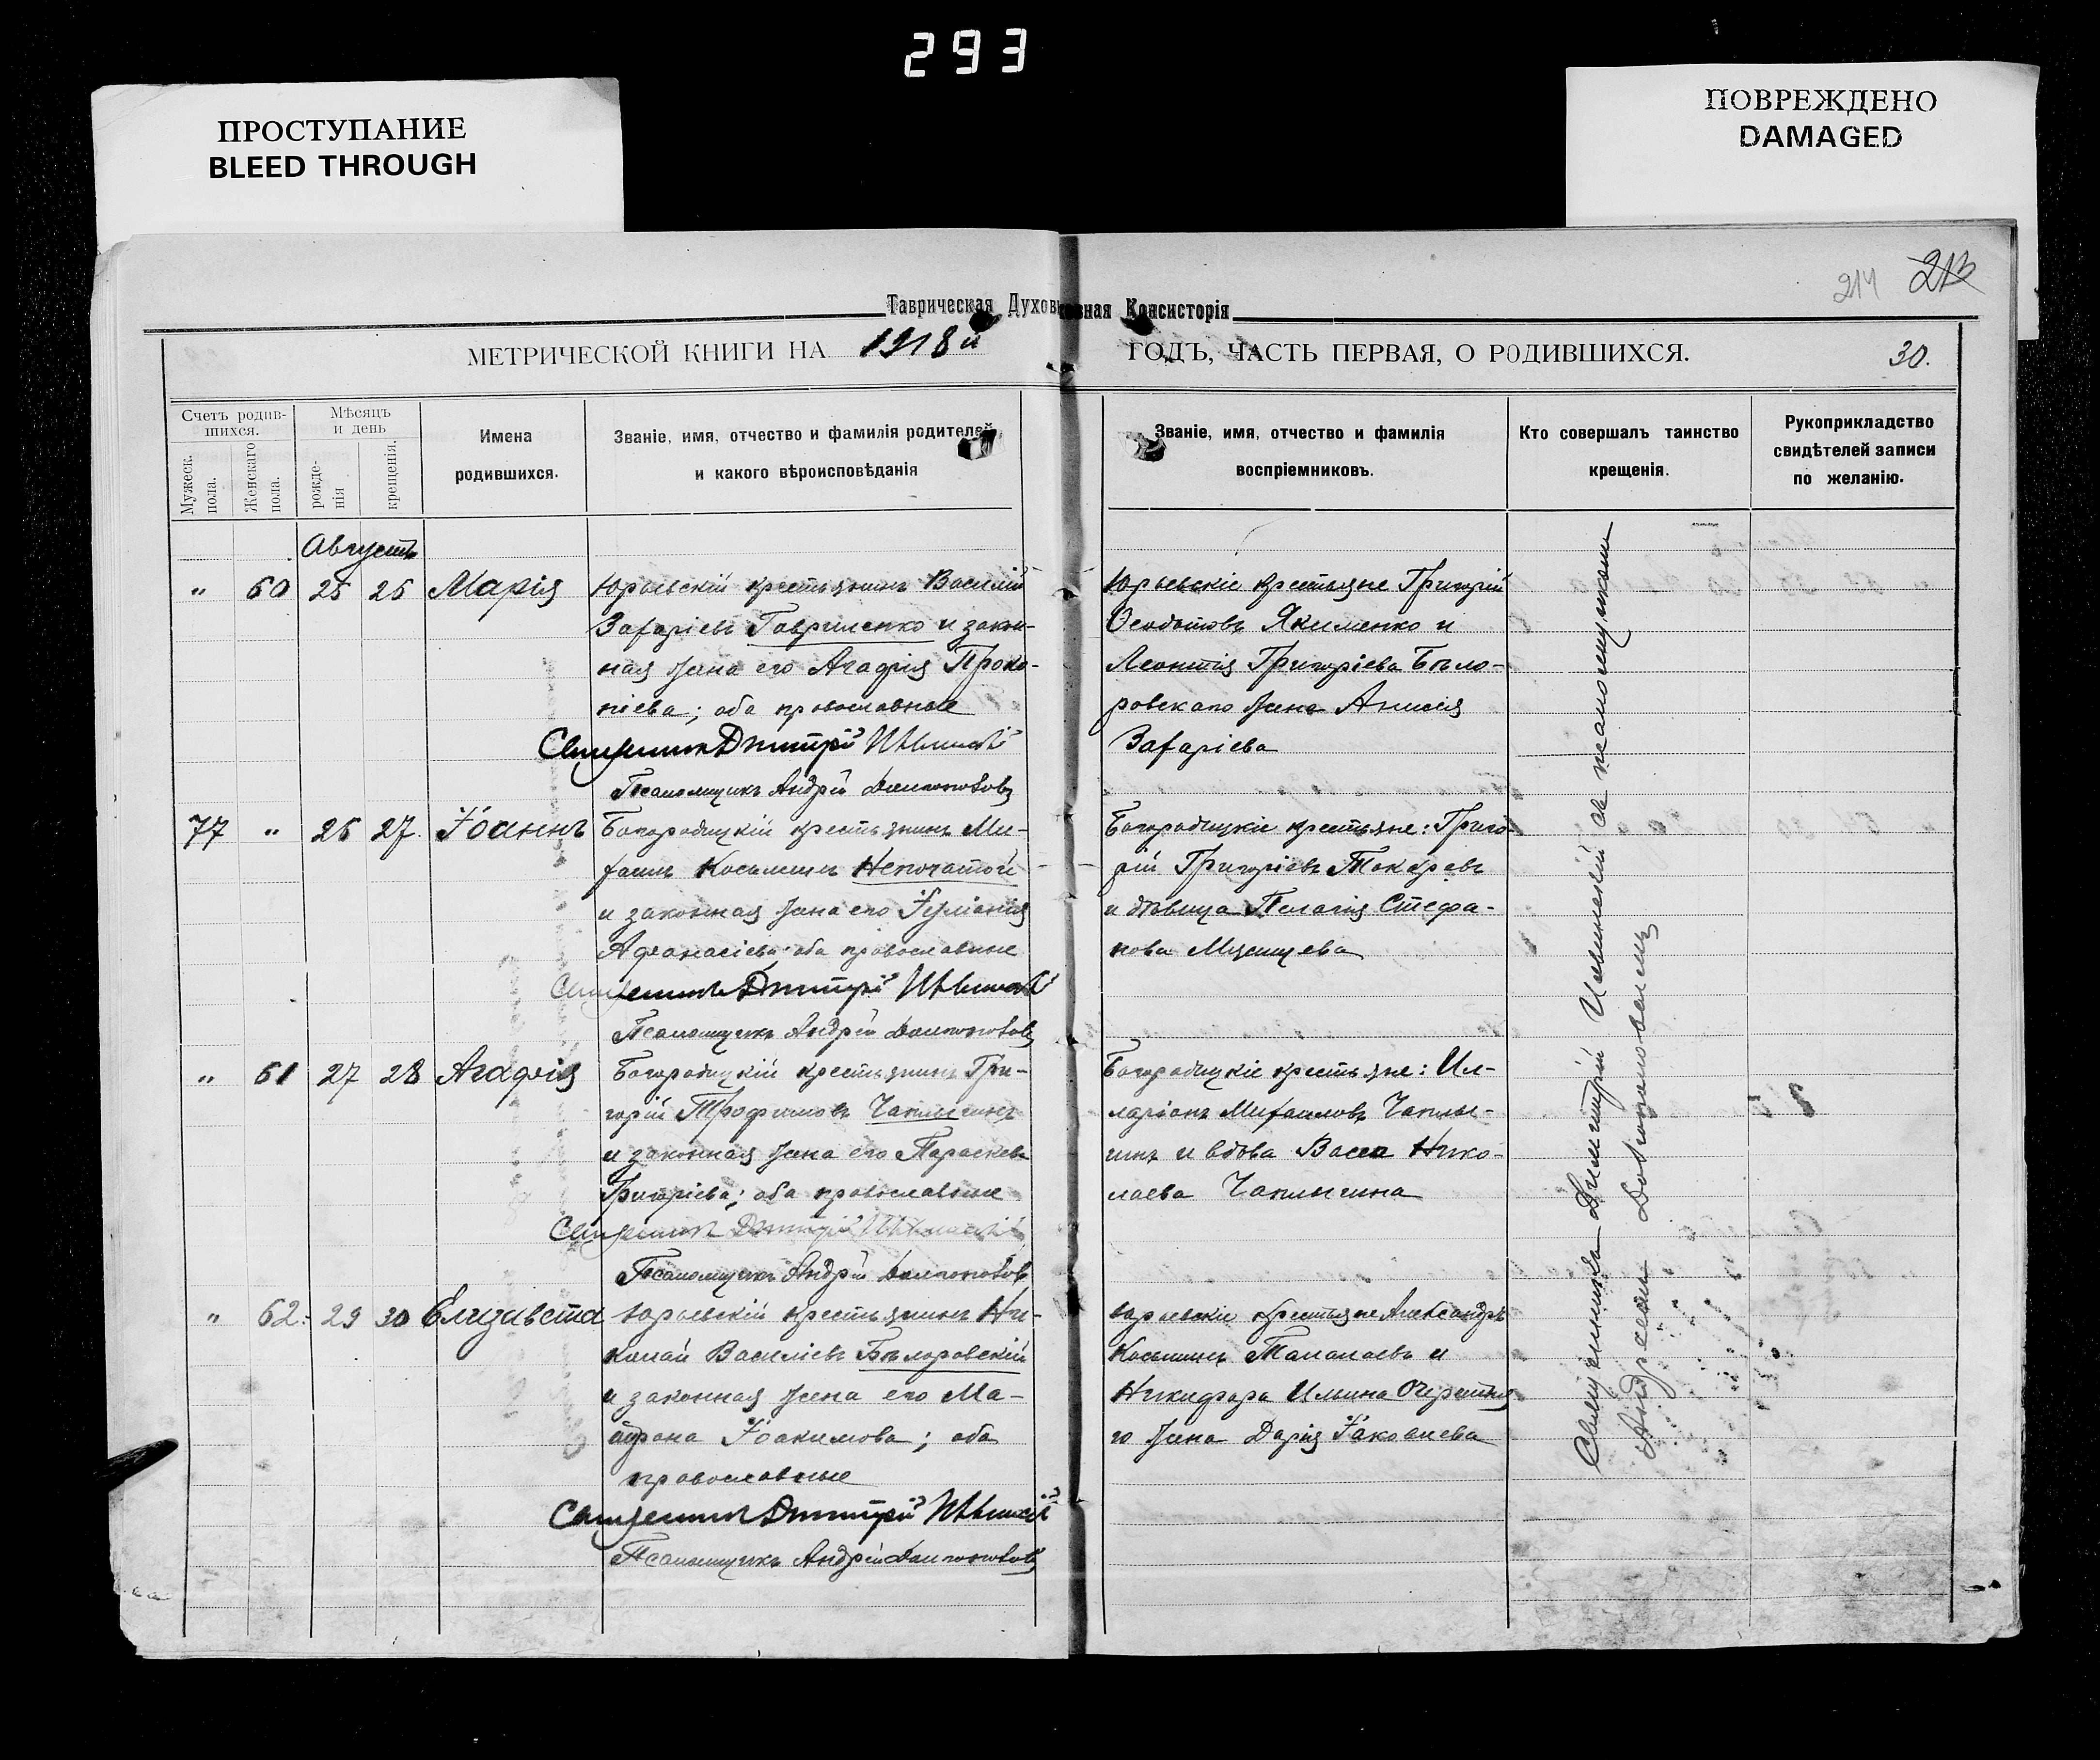 293
ПРОСТУПАНИЕ
BLEED THROUGH
ПОВРЕЖДЕНО
DAMAGED
214 213
Таврическая Духовная Консисторія
МЕТРИЧЕСКОЙ КНИГИ НА 1918й ГОДЪ, ЧАСТЬ ПЕРВАЯ, О РОДИВШИХСЯ. 30.
Счетъ родив-
шихся.
Мужеск. пола.
Женскаго пола.
Мѣсяцъ
и день
рожде-
нія
крещенія.
Имена
родившихся.
Званіе, имя, отчество и фамилія родителей
и какого вѣроисповѣданія
Званіе, имя, отчество и фамилія
воспріемниковъ.
Кто совершалъ таинство
крещенія.
Рукоприкладство
свидѣтелей записи
по желанію.
Августъ
" 60 25 26 Марія Юрьевскій крестьянинъ Василій
Захаріевъ Гавриленко и закон-
ная жена его Агафія Проко-
піева; оба православные
Священникъ Дмитрій
Псаломщикъ Андрей
Юрьевскіе крестьяне Григорій
Ѳеодотовъ Якименко и
Леонтія Григоріева Бѣло-
ровскаго жена Анисія
Захаріева
77 " 26 27. Іоаннъ Богородицкій крестьянинъ Ми-
хаилъ Косьминъ Непочатой
и законная жена его Іуліанія
Аѳанасіева; оба православные
Священникъ Дмитрій
Псаломщикъ Андрей
Богородицкіе крестьяне: Григо-
рій Григоріевъ Токаревъ
и дѣвица Пелагія Стефа-
нова
" 61 27 28 Агафія Богородицкій крестьянинъ Гри-
горій Трофимовъ Чаплыгинъ
и законная жена его Параскева
Григоріева; оба православные
Священникъ Дмитрій
Псаломщикъ Андрей
Богородицкіе крестьяне: Ил-
ларіонъ Михаиловъ Чаплы-
гинъ и вдова Васса Нико-
лаева Чаплыгина
" 62. 29 30 Елизавета Юрьевскій крестьянинъ Ни-
колай Василіевъ Бѣлоровскій
и законная жена его Ма-
трона Іоакимова; оба
православные
Священникъ Дмитрій
Псаломщикъ Андрей
Юрьевскіе крестьяне Александръ
Косьминъ Таналаевъ и
Никифора Ильина
го жена Дарія Іаковлева
Священникъ Димитрій съ псаломщикомъ
Андреемъ